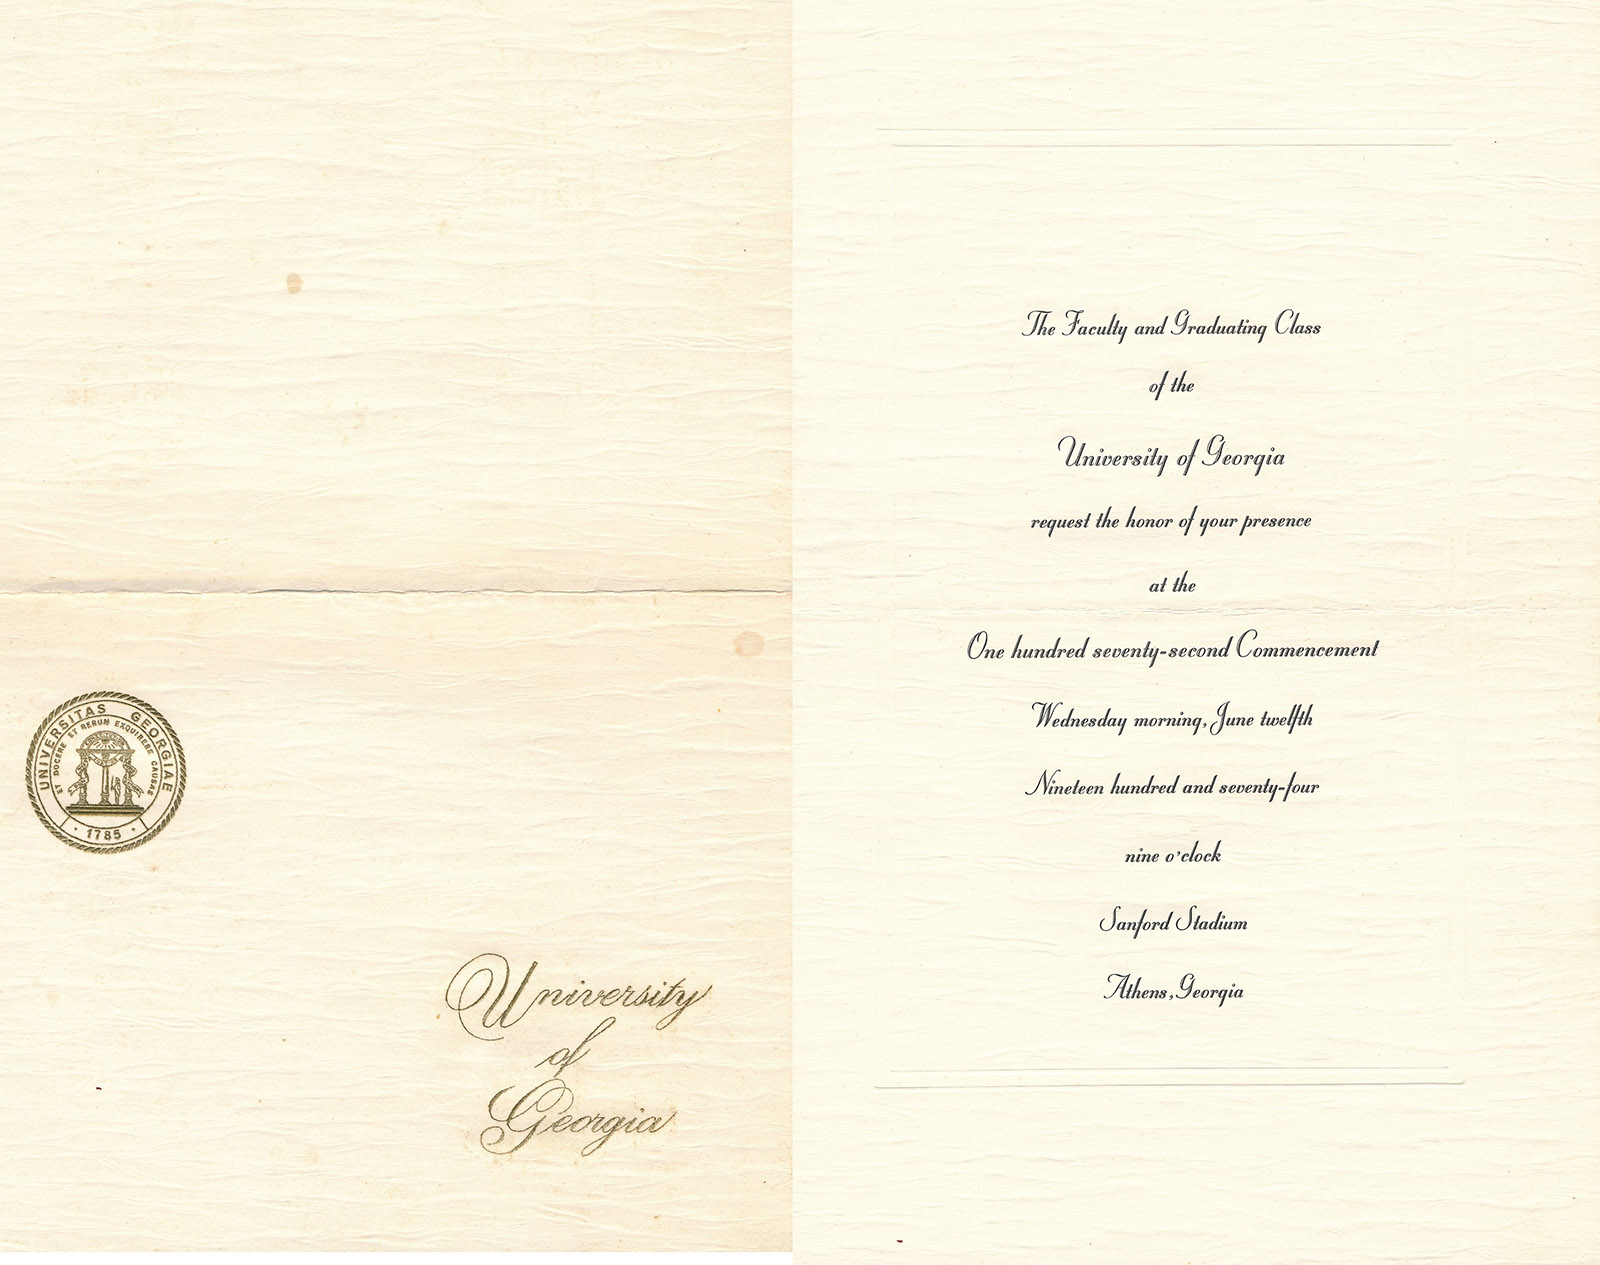 UNIVERSITAS GEORGIAE
ET DOCERE ET RERUM EXQUIRERE CAUSAS
· 1785 ·
University
of
Georgia
The Faculty and Graduating Class
of the
University of Georgia
request the honor of your presence
at the
One hundred seventy-second Commencement
Wednesday morning, June twelfth
Nineteen hundred and seventy-four
nine o'clock
Sanford Stadium
Athens, Georgia